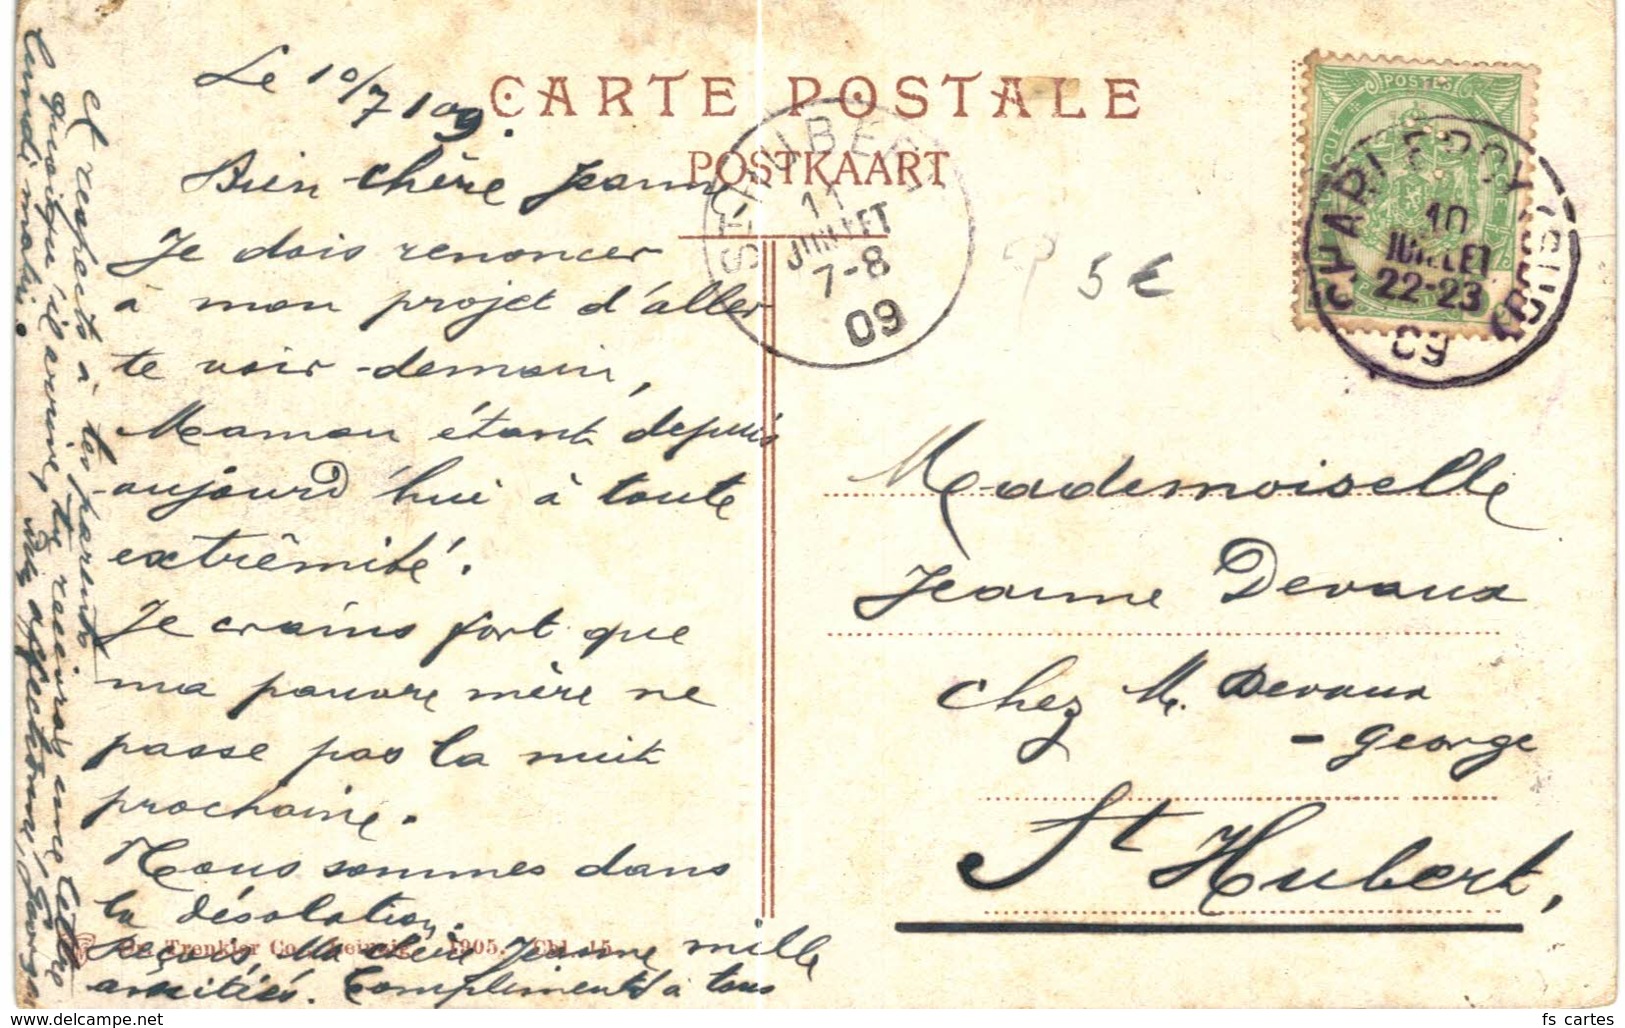 CARTE POSTALE
POSTKAART
Le 10/7 109.
Bien chère Jeanne,
Je dois renoncer
à mon projet d'aller
te voir demain,
Maman étant depuis
aujourd'hui à toute
extrêmité.
Je crains fort que
ma pauvre mère ne
passe pas la nuit
prochaine.
Nous sommes dans
la désolation.
Reçois, ma chère Jeanne mille
amitiés. Compliments à tous
et respects à tes parents
quoiqu'il arrive, tu recevras une lettre
lundi matin.
Bien affectueux, Georges
Dr. Trenkler Co., Leipzig. 1905. Chl. 15.
ST HUBERT
11
JUILLET
7-8
09
5 €
POSTES
CHARLEROY
10
JUILLET
22-23
09
Mademoiselle
Jeanne Devaux
chez M. Devaux
- George
St Hubert,
www.delcampe.net
fs_cartes